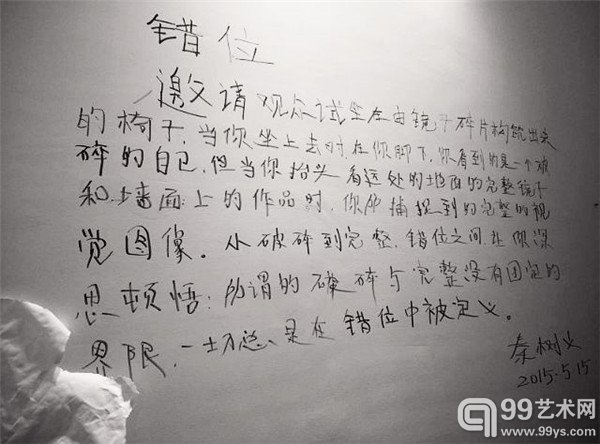 错位
邀请观众试坐在由镜子碎片构筑出来
的椅子,当你坐上去时,在你脚下,你看到的是一个破
碎的自己,但当你抬头看远处的地面的完整镜子
和墙面上的作品时,你所捕捉到的完整的视
觉图像。从破碎到完整,错位之间,让你深
思顿悟:所谓的破碎与完整没有固定的
界限,一切总是在错位中被定义。
秦树义
2015.5.15
99艺术网
www.99ys.com